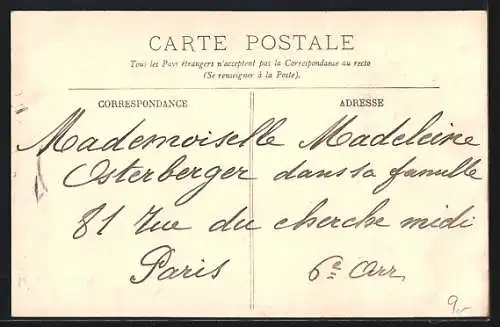 CARTE POSTALE
Tous les Pays étrangers n'acceptent pas la Correspondance au recto
(Se renseigner à la Poste).
CORRESPONDANCE ADRESSE
Mademoiselle Madeleine
Osterberger dans sa famille
81 rue du cherche midi
Paris 6e Arr
9